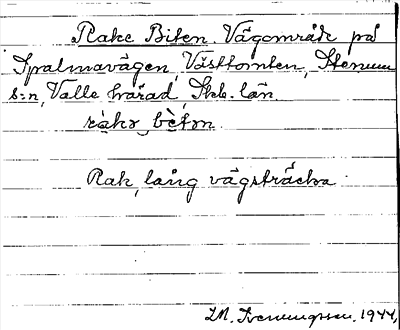 Rake Biten Vägområde på
Spalmavägen, Västtomten, Stenum
s:n, Valle härad, Skb. län.
ràkɘ bètɘn

Rak, lång vägsträcka.

I.M. Svenungsson. 1944,